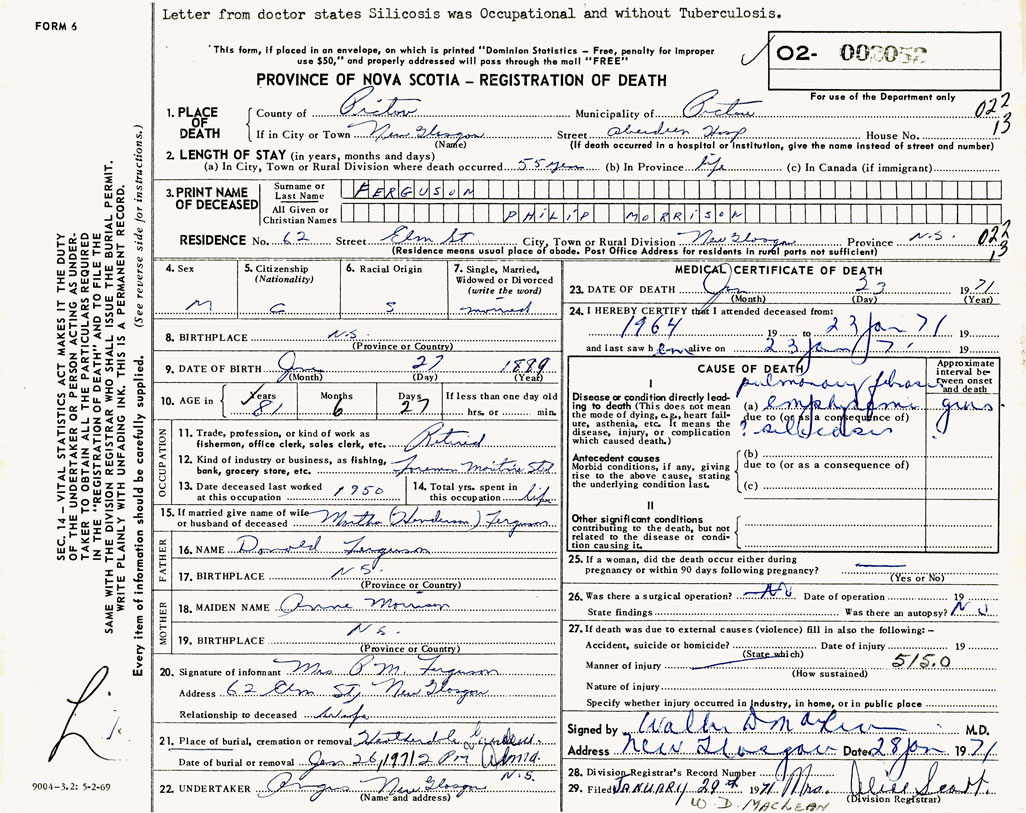 Letter from doctor states Silicosis was Occupational and without Tuberculosis.
FORM 6
This form, if placed in an envelope, on which is printed "Dominion Statistics – Free, penalty for improper
use $50," and properly addressed will pass through the mail "FREE"
02-
PROVINCE OF NOVA SCOTIA – REGISTRATION OF DEATH
For use of the Department only
1. PLACE OF DEATH
County of Pictou Municipality of Pictou
022
13
If in City or Town New Glasgow Street Aberdeen Hosp House No.
(Name) (If death occurred in a hospital or institution, give the name instead of street and number)
2. LENGTH OF STAY (in years, months and days)
(a) In City, Town or Rural Division where death occurred 55 years (b) In Province life (c) In Canada (if immigrant)
3. PRINT NAME OF DECEASED
Surname or Last Name FERGUSON
All Given or Christian Names PHILIP MORRISON
RESIDENCE No. 62 Street Elm St City, Town or Rural Division New Glasgow Province N.S.
022
13
(Residence means usual place of abode. Post Office Address for residents in rural parts not sufficient)
4. Sex
M
5. Citizenship
(Nationality)
C
6. Racial Origin
S
7. Single, Married,
Widowed or Divorced
(write the word)
married
8. BIRTHPLACE N.S.
(Province or Country)
9. DATE OF BIRTH 27 1889
(Month) (Day) (Year)
10. AGE in Years 81 Months 6 Days 27 If less than one day old
hrs. or min.
OCCUPATION
11. Trade, profession, or kind of work as
fisherman, office clerk, sales clerk, etc. Retired
12. Kind of industry or business, as fishing,
bank, grocery store, etc. foreman
13. Date deceased last worked
at this occupation 1950
14. Total yrs. spent in
this occupation life
15. If married give name of wife
or husband of deceased Martha (Henderson) Ferguson
FATHER
16. NAME Donald Ferguson
17. BIRTHPLACE N.S.
(Province or Country)
MOTHER
18. MAIDEN NAME Anne Morrison
19. BIRTHPLACE N.S.
(Province or Country)
20. Signature of informant Mrs. P. M. Ferguson
Address 62 Elm St, New Glasgow
Relationship to deceased wife
21. Place of burial, cremation or removal
Date of burial or removal Jan 26, 1971 2 PM
N.S.
22. UNDERTAKER Angus New Glasgow
(Name and address)
MEDICAL CERTIFICATE OF DEATH
23. DATE OF DEATH Jan 23 1971
(Month) (Day) (Year)
24. I HEREBY CERTIFY that I attended deceased from:
1964 19 to 23 Jan 71 19
and last saw him alive on 23 Jan 71 19
CAUSE OF DEATH
Approximate interval between onset and death
I
pulmonary fibrosis
Disease or condition directly leading to death (This does not mean the mode of dying, e.g., heart failure, asthenia, etc. It means the disease, injury, or complication which caused death.)
(a) emphysema yrs
due to (or as a consequence of)
? silicosis
Antecedent causes
Morbid conditions, if any, giving rise to the above cause, stating the underlying condition last.
(b)
due to (or as a consequence of)
(c)
II
Other significant conditions
contributing to the death, but not related to the disease or condition causing it.
25. If a woman, did the death occur either during
pregnancy or within 90 days following pregnancy?
(Yes or No)
26. Was there a surgical operation? No Date of operation 19
State findings Was there an autopsy? No
27. If death was due to external causes (violence) fill in also the following: –
Accident, suicide or homicide? Date of injury 19
(State which)
515.0
Manner of injury
(How sustained)
Nature of injury
Specify whether injury occurred in industry, in home, or in public place
Signed by M.D.
Address New Glasgow Date 28 Jan 1971
28. Division Registrar's Record Number
29. Filed JANUARY 29th 1971 Mrs. Alice Scott.
W. D. MACLEAN (Division Registrar)
SEC. 14 – VITAL STATISTICS ACT MAKES IT THE DUTY
OF THE UNDERTAKER OR PERSON ACTING AS UNDERTAKER TO OBTAIN ALL THE PARTICULARS REQUIRED
IN THE "REGISTRATION OF DEATH" AND TO FILE THE
SAME WITH THE DIVISION REGISTRAR WHO SHALL ISSUE THE BURIAL PERMIT.
WRITE PLAINLY WITH UNFADING INK. THIS IS A PERMANENT RECORD.
Every item of information should be carefully supplied. (See reverse side for instructions.)
9004-3.2: 5-2-69